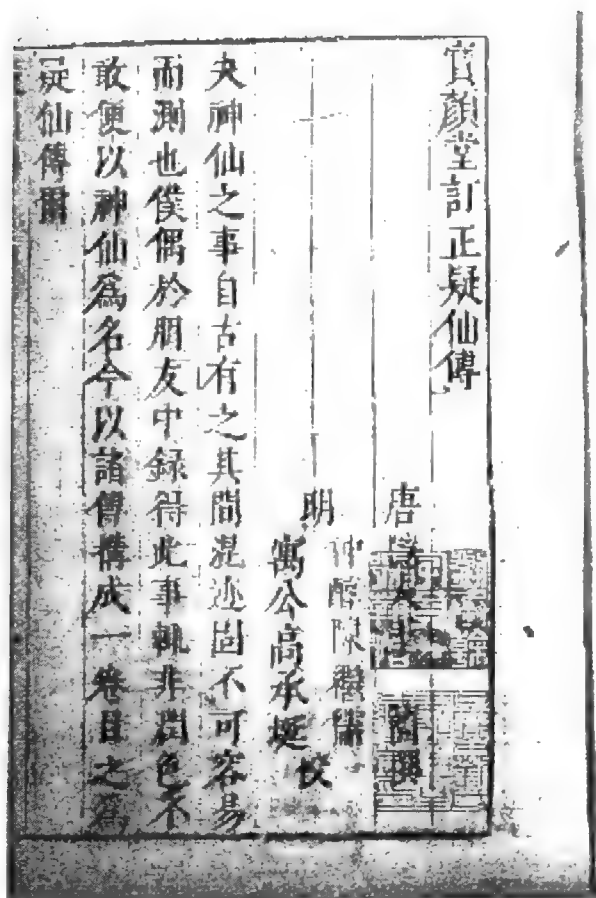 寶顏堂訂正疑仙傳
唐
明
仲醇陳繼儒
寓公高承埏 校
夫神仙之事自古有之其間混迹固不可容易
而測也僕偶於朋友中録得此事輒非潤色不
敢便以神仙爲名今以諸傳構成一卷目之爲
疑仙傳爾